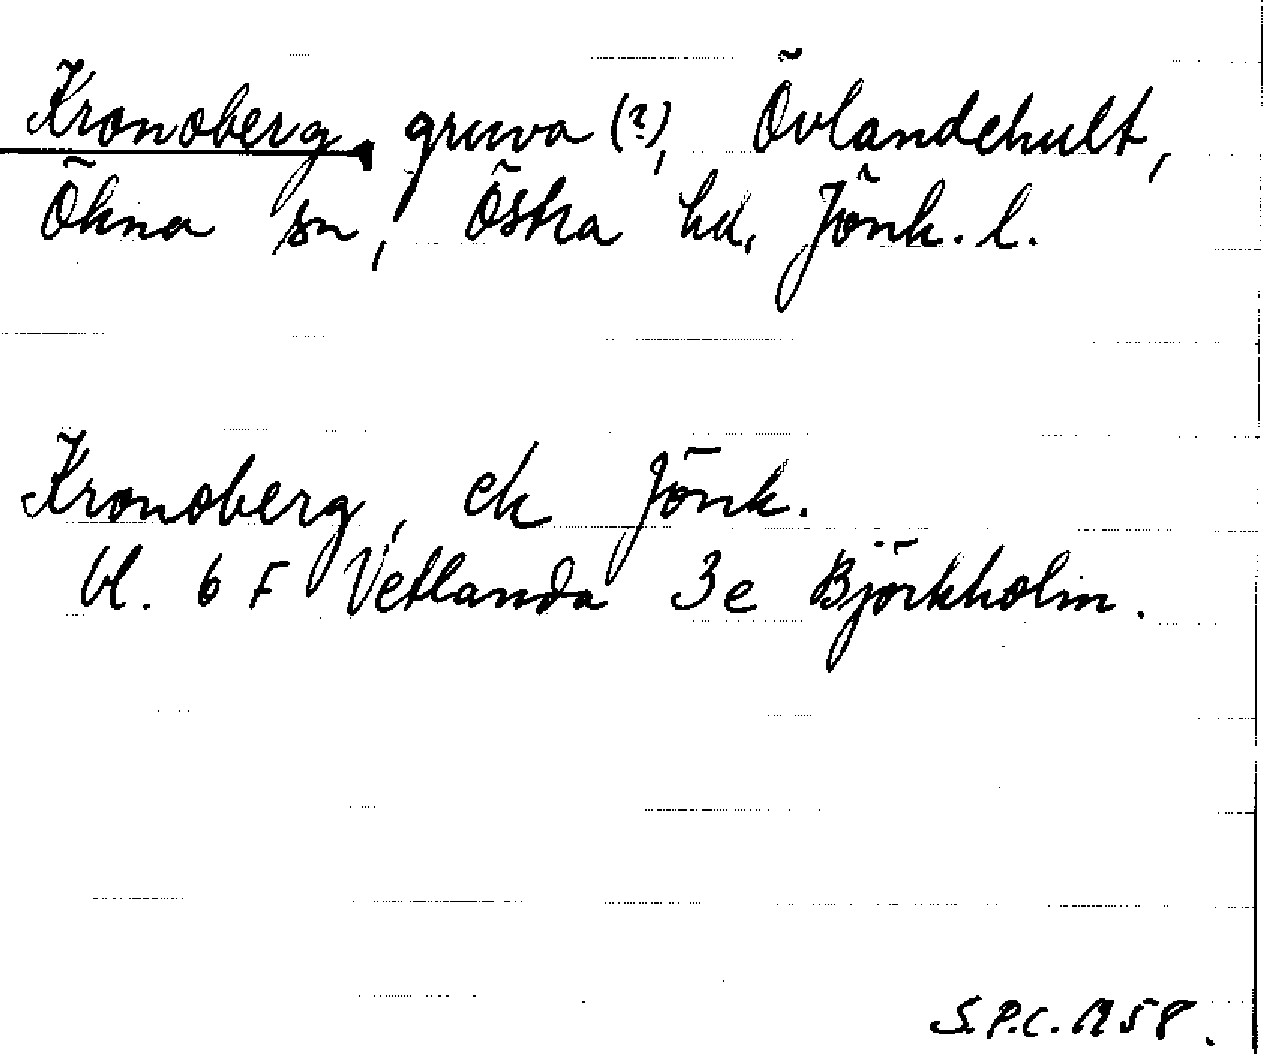 Kronoberg, gruva (?), Övlandehult,
Ökna sn, Östra hd, Jönk. l.
Kronoberg, ek Jönk.
bl. 6 F Vetlanda 3e Björkholm.
S.P.C. 1958.